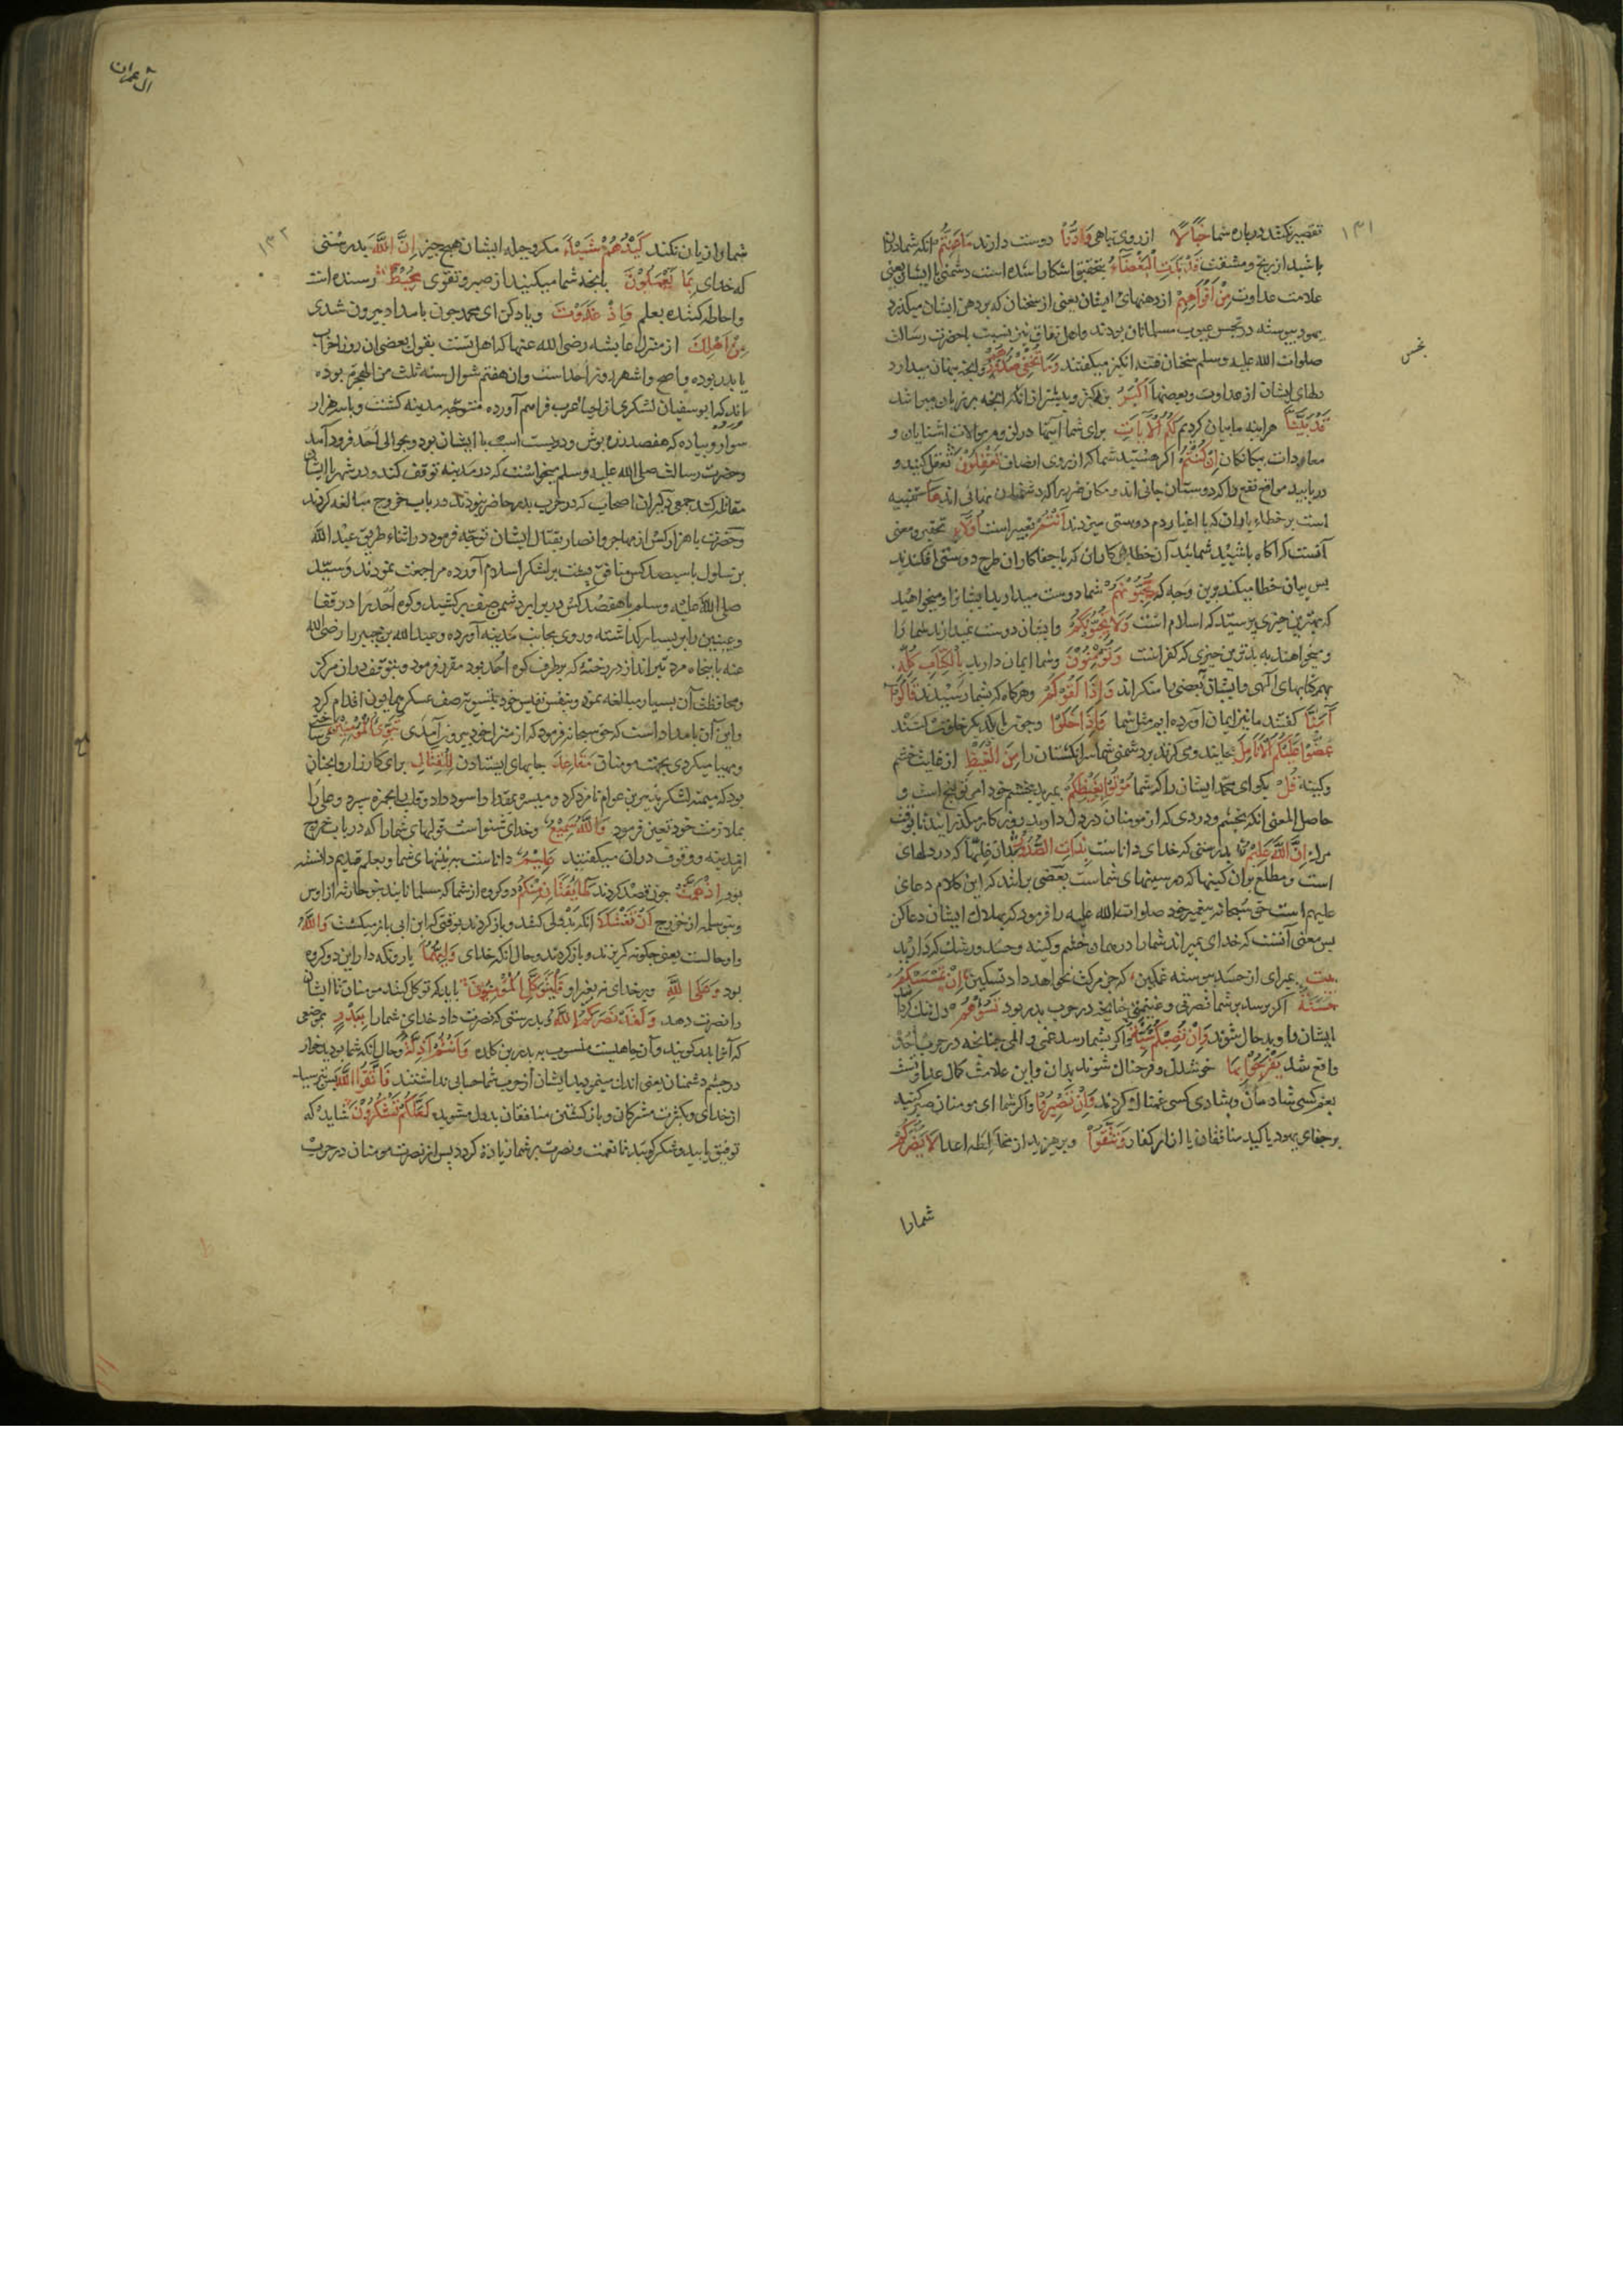 ۱۳۱
تقصیر نکنند درباره شما خَبَالًا از روی تباهی وَدُّوا دوست دارند مَا عَنِتُّمْ آنکه شما در آن
باشید از رنج و مشقت قَدْ بَدَتِ الْبَغْضَاءُ بتحقیق آشکارا شده است دشمنی با ایشان یعنی
علامت عداوت مِنْ أَفْوَاهِهِمْ از دهنهای ایشان یعنی از سخنان که بر دهن ایشان میگذرد
یهود پیوسته در تجسس عیوب مسلمانان بودند و اهل نفاق نیز نسبت با حضرت رسالت
صلوات الله علیه وسلم سخنان فتنه انگیز میگفتند وَمَا تُخْفِي صُدُورُهُمْ و آنچه پنهان میدارد
دلهای ایشان از عداوت و بعضها أَكْبَرُ بزرگتر و بیشتر از آنکه آنچه بر زبان میراند
قَدْ بَيَّنَّا هراینه ما بیان کردیم لَكُمُ الْآيَاتِ برای شما آیتها در لزوم موالات آشنایان و
معادات بیکانکان إِنْ كُنْتُمْ اکر هستید شما که از روی انصاف تَعْقِلُونَ تعقل کنید و
دریابید مواضع نفع را که دوستان جانی اند و مکان ضرر را که دشمنان نهانی اند هَا تنبیه
است بر خطاء یاران که با اغیار دم دوستی میزدند أَنْتُمْ تعبیر است أُولَاءِ تحقیر و معنی
آنست که آکاه باشید شمائید آن خطا کاران که با جفاکاران طرح دوستی افکندید
پس بیان خطا میکند برین وجه که تُحِبُّونَهُمْ شما دوست میدارید ایشانرا و میخواهید
که بهترین چیزی برسند که اسلام است وَلَا يُحِبُّونَكُمْ و ایشان دوست نمیدارند شما را
و میخواهند به بدترین چیزی که کفر است وَتُؤْمِنُونَ و شما ایمان دارید بِالْكِتَابِ كُلِّهِ
بهمه کتابهای الهی و ایشان بعضی را منکراند وَإِذَا لَقُوكُمْ و هرکاه که بشما رسیدند قَالُوا
آمَنَّا کفتند ما نیز ایمان آورده ایم مثل شما وَإِذَا خَلَوْا و چون با یکدیکر خلوت کنند
عَضُّوا عَلَيْكُمُ الْأَنَامِلَ بخایند و می کزند بر دشمنی شما سر انکشتان را مِنَ الْغَيْظِ از غایت خشم
و کینه قُلْ بکو ای محمد ایشان را که شما مُوتُوا بِغَيْظِكُمْ بمیرید بخشم خود
حاصل المعنی آنکه بخشم و دردی که از مومنان در دل دارید روزکار میکذرانید تا بوقت
مرک إِنَّ اللَّهَ عَلِيمٌ بدرستی که خدای داناست بِذَاتِ الصُّدُورِ بدان که در دلهای
است و مطلع بران کینها که در سینهای شماست بعضی برانند که این کلام دعای
علیهم است حق سبحانه پیغمبر خود صلوات الله علیه را فرمود که بهلاک ایشان دعا کن
پس معنی آنست که خدای بمیراند شما را در همان خشم و کینه و حسد و رشک که دارید
بیت بمیر ای از حسد پیوسته غمکین که جز مرکت نخواهد داد تسکین إِنْ تَمْسَسْكُمْ
حَسَنَةٌ اکر برسد بر شما نصرتی و غنیمتی چنانچه در حرب بدر بود تَسُؤْهُمْ دل تنک کرداند
ایشان را و بدحال شوند وَإِنْ تُصِبْكُمْ سَيِّئَةٌ و اکر بشما رسد غمی و المی چنانچه در حرب احد
واقع شد يَفْرَحُوا بِهَا خوشدل و فرحناک شوند بدان و این علامت کمال عداوتست
بغم کسی شادمان و بشادی کسی غمناک کردند وَإِنْ تَصْبِرُوا و اکر شما ای مومنان صبر کنید
بر جفای یهود یا کید منافقان یا آزار کفار وَتَتَّقُوا و بپرهیزید از مخالطه اعدا لَا يَضُرُّكُمْ
شمارا
آل عمران
۱۳۲
شما را زیان نکند كَيْدُهُمْ شَيْئًا مکر و حیله ایشان هیچ چیز إِنَّ اللَّهَ بدرستی
که خدای بِمَا يَعْمَلُونَ بانچه شما میکنید از صبر و تقوی مُحِيطٌ رسنده است
و احاطه کننده بعلم وَإِذْ غَدَوْتَ و یاد کن ای محمد چون بامداد بیرون شدی
مِنْ أَهْلِكَ از منزل عایشه رضی الله عنها که اهل تست بقول بعضی آن روز احزاب
یا بدر بوده و اصح و اشهر روز احد است و آن هفتم شوال سنه ثلث من الهجرة بوده
آورده اند که ابوسفیان لشکری از احیاء عرب فراهم آورده متوجه مدینه کشت و با سه هزار
سوار و پیاده که هفتصد زره پوش و دویست اسب با ایشان بود و بحوالی احد فرود آمد
و حضرت رسالت صلی الله علیه وسلم میخواست که در مدینه توقف کند و در شهر با ایشان
مقاتله کند جمعی دیکران اصحاب که در حرب بدر حاضر نبودند در باب خروج مبالغه کردند
و حضرت با هزار کس از مهاجر و انصار بقتال ایشان توجه فرمود در اثناء طریق عبد الله
بن سلول با سیصد کس منافق پشت بر لشکر اسلام آورده مراجعت نمودند و سید
صلی الله علیه وسلم با هفتصد کس در برابر دشمن صف برکشید و کوه احد را در قفا
و عینین را بر یسار کذاشته و روی بجانب مدینه آورده و عبد الله بن جبیر را رضی الله
عنه با پنجاه مرد تیرانداز در رخنهٔ که بر طرف کوه احد بود مقرر فرمود و بتوقف دران مرکز
و محافظت آن بسیار مبالغه نمود و بنفس نفیس خود بتسویه صف عسکر همایون اقدام کرد
و این آن بامداد است که حق سبحانه فرمود که از منزل خود بیرون آمدی تُبَوِّئُ الْمُؤْمِنِينَ
و مهیا میکردی بجهت مومنان مَقَاعِدَ جایهای ایستادن لِلْقِتَالِ برای کارزار و آنچنان
بود که میمنه لشکر بزبیر بن عوام نامزد کرد و میسره بمقداد اسود داد و قلب بحمزه سپرد و علی را
بملازمت خود تعیین فرمود وَاللَّهُ سَمِيعٌ و خدای شنواست قولهای شما را که در باب خروج
از مدینه و وقوف دران میکفتید عَلِيمٌ داناست بر نیتهای شما و بعلم قدیم دانسته
بود إِذْ هَمَّتْ چون قصد کردند طَائِفَتَانِ مِنْكُمْ دو کروه از شما که مسلمانانید بنو حارثه از اوس
و بنو سلمه از خزرج أَنْ تَفْشَلَا آنکه بددلی کنند و باز کردند بوقتی که ابن ابی باز میکشت وَاللَّهُ
و او حالست یعنی چکونه کریزند و باز کردند و حال آنکه خدای وَلِيُّهُمَا یار و نکه دار این دو کروه
بود وَعَلَى اللَّهِ و بر خدای نه بغیر او فَلْيَتَوَكَّلِ الْمُؤْمِنُونَ باید که توکل کنند مومنان تا ایشان
را نصرت دهد وَلَقَدْ نَصَرَكُمُ اللَّهُ بدرستی که نصرت داد خدای شما را بِبَدْرٍ بموضعی
که آنرا بدر کویند و آن چاهیست منسوب به بدر بن کلده وَأَنْتُمْ أَذِلَّةٌ و حال آنکه شما بودید خوار
در چشم دشمنان
از خدای و بکثرت مشرکان و باز کشتن منافقان بددل مشوید لَعَلَّكُمْ تَشْكُرُونَ شاید که
توفیق یابید و شکر کویید تا نعمت و نصرت بر شما زیادة کردد پس از نصرت مومنان در حرب